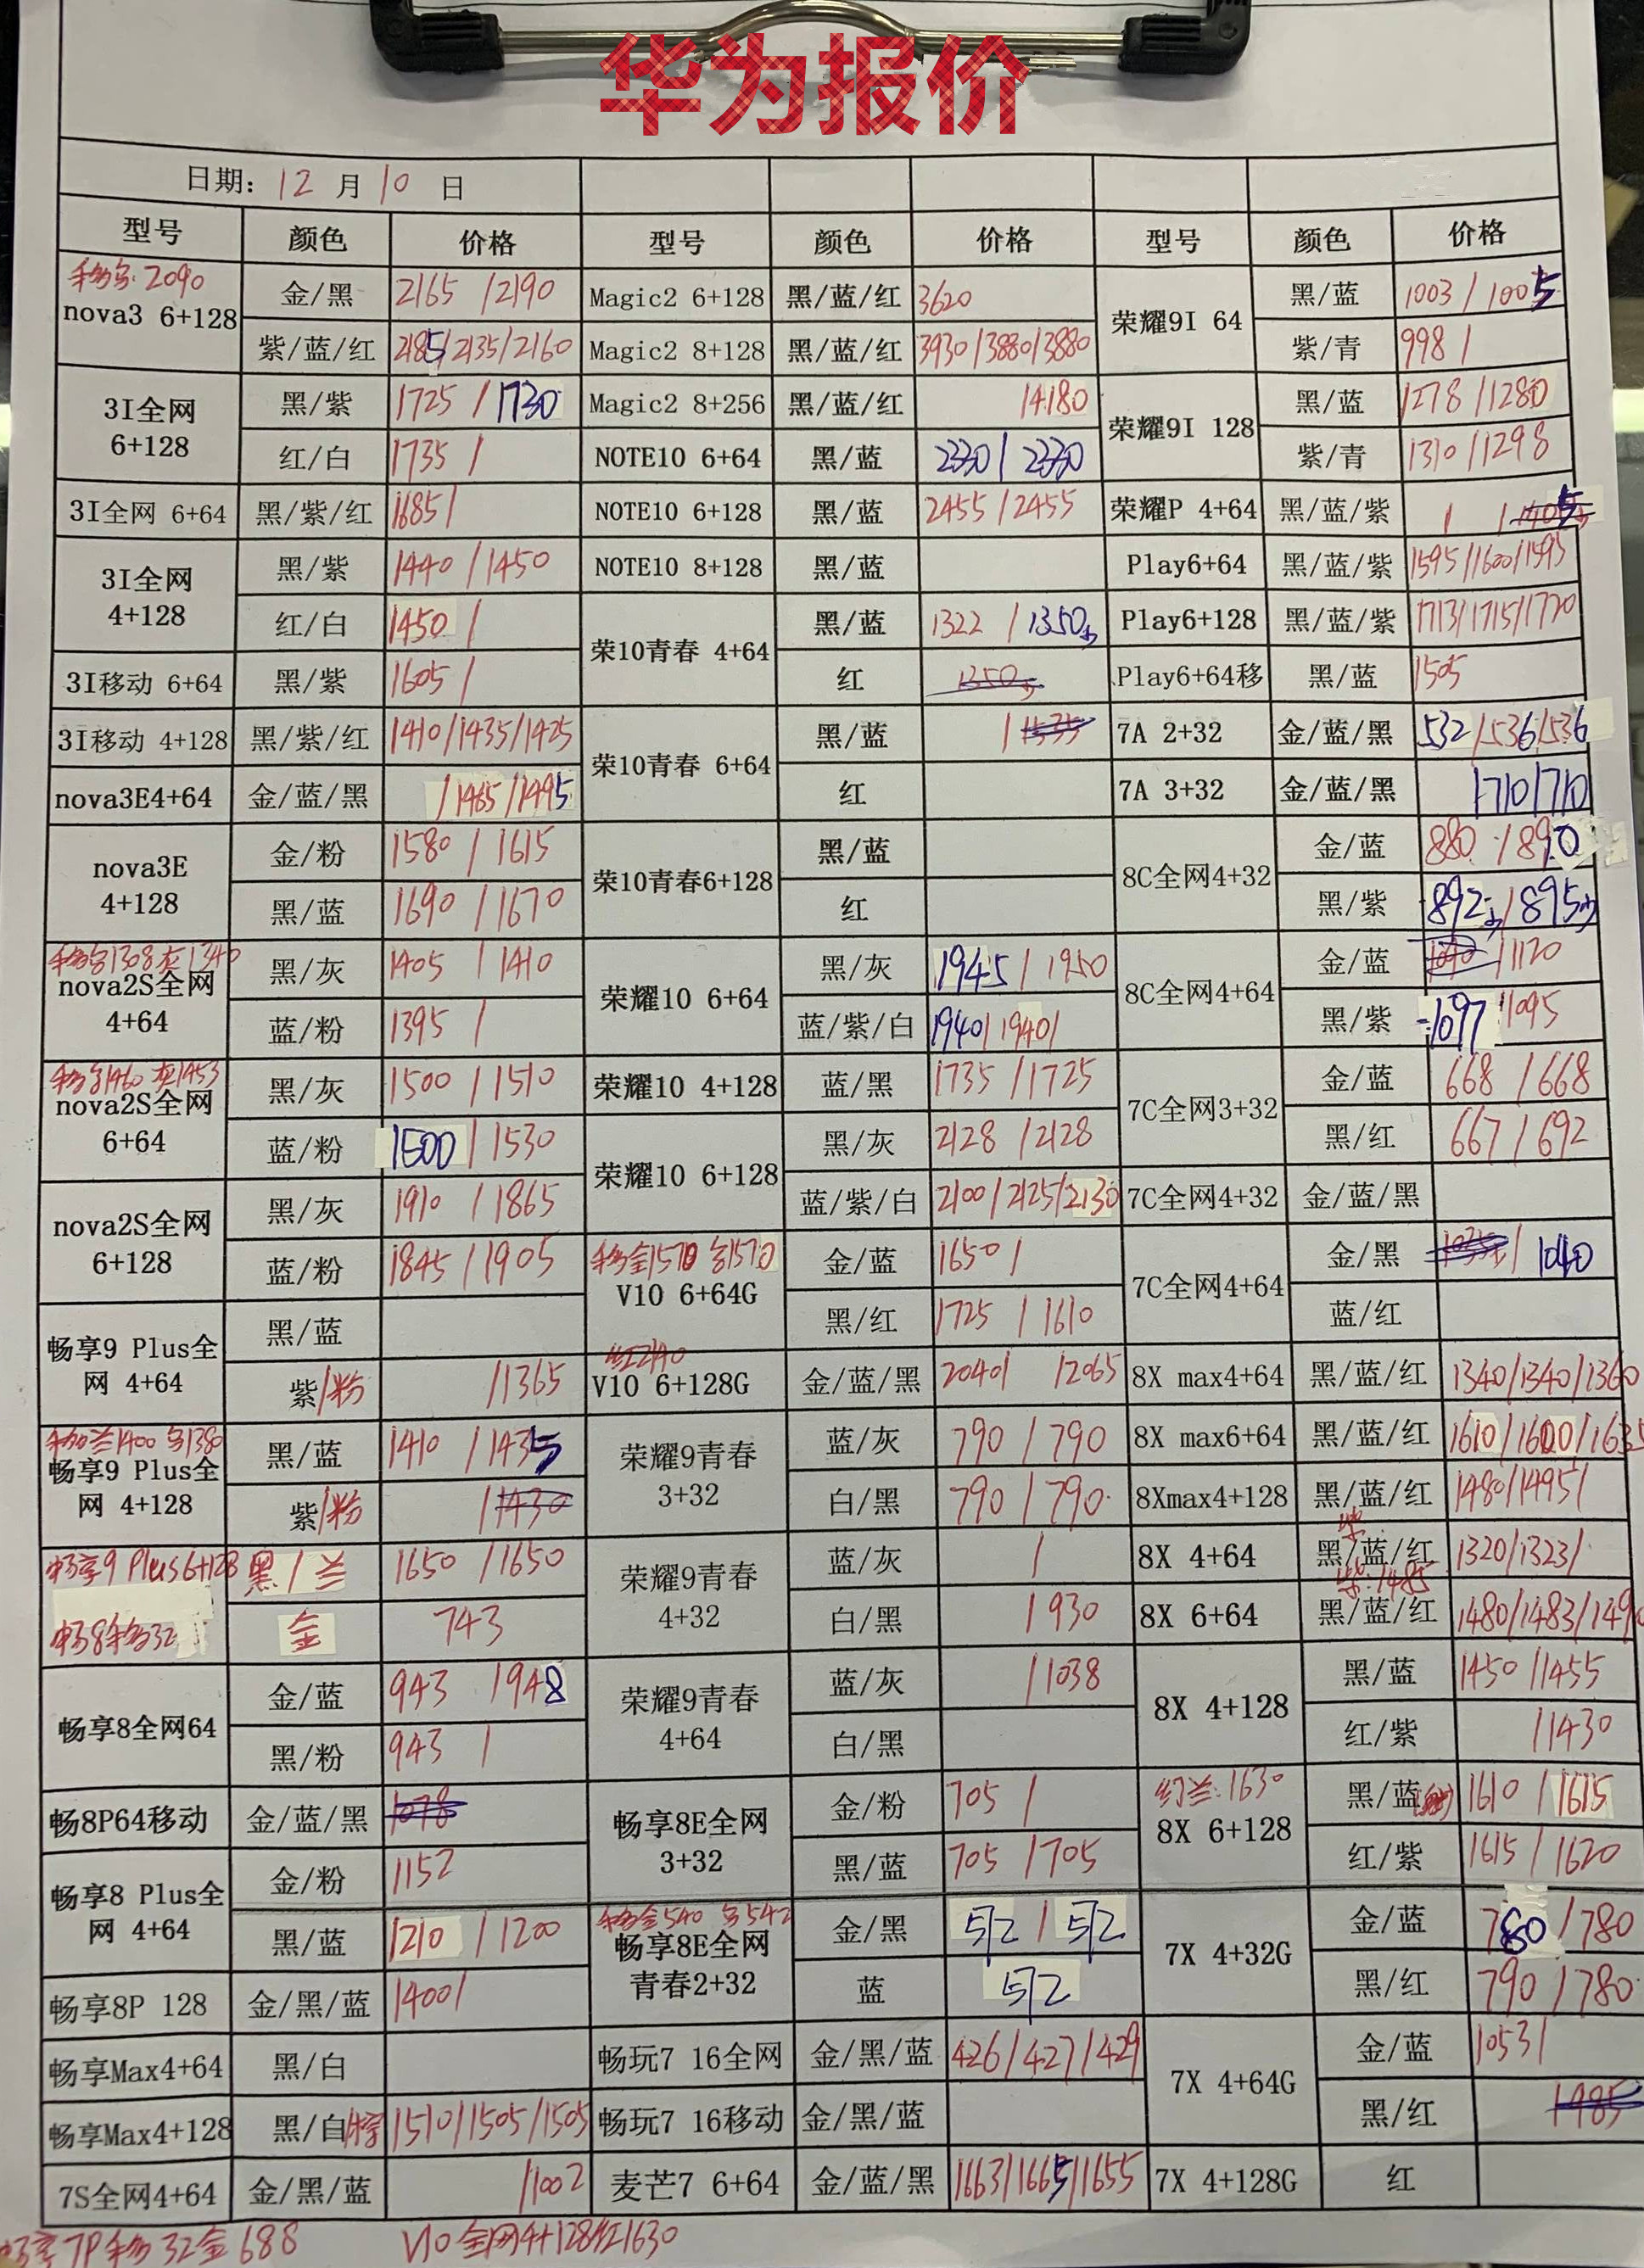 华为报价
日期: 12 月 10 日
型号 颜色 价格 型号 颜色 价格 型号 颜色 价格
2090
nova3 6+128 金/黑 2165 /2190 Magic2 6+128 黑/蓝/红 3620 荣耀9I 64 黑/蓝 1003 / 1005
紫/蓝/红 2185/2135/2160 Magic2 8+128 黑/蓝/红 3930/3880/3880 紫/青 998 /
3I全网 6+128 黑/紫 1725 / 1730 Magic2 8+256 黑/蓝/红 /4180 荣耀9I 128 黑/蓝 1278 /1280
红/白 1735 / NOTE10 6+64 黑/蓝 2330 / 2330 紫/青 1310 /1298
3I全网 6+64 黑/紫/红 1685/ NOTE10 6+128 黑/蓝 2455 / 2455 荣耀P 4+64 黑/蓝/紫 / /
3I全网 4+128 黑/紫 1440 / 1450 NOTE10 8+128 黑/蓝 Play6+64 黑/蓝/紫 1595/1600/1595
红/白 1450 / 荣10青春 4+64 黑/蓝 1322 / 1350 Play6+128 黑/蓝/紫 1713/1715/1720
3I移动 6+64 黑/紫 1605 / 红 1350 Play6+64移 黑/蓝 1505
3I移动 4+128 黑/紫/红 1410/1435/1425 荣10青春 6+64 黑/蓝 / 1535 7A 2+32 金/蓝/黑 532/536/536
nova3E4+64 金/蓝/黑 /1465/1495 红 7A 3+32 金/蓝/黑 /710/710
nova3E 4+128 金/粉 1580 / 1615 荣10青春6+128 黑/蓝 8C全网4+32 金/蓝 880 /890
黑/蓝 1690 /1670 红 黑/紫 892 / 895
移动 1308 灰1340
nova2S全网 4+64 黑/灰 1405 / 1410 荣耀10 6+64 黑/灰 1945 / 1950 8C全网4+64 金/蓝 /1120
蓝/粉 1395 / 蓝/紫/白 1940/ 1940/ 黑/紫 1097 /1095
1460 灰1453
nova2S全网 6+64 黑/灰 1500 / 1510 荣耀10 4+128 蓝/黑 1735 /1725 7C全网3+32 金/蓝 668 / 668
蓝/粉 1500 / 1530 荣耀10 6+128 黑/灰 2128 /2128 黑/红 667 / 692
nova2S全网 6+128 黑/灰 1910 / 1865 蓝/紫/白 2100/2125/2130 7C全网4+32 金/蓝/黑
蓝/粉 1845 / 1905 移动金1570 1570 V10 6+64G 金/蓝 1650 / 7C全网4+64 金/黑 / 1040
畅享9 Plus全网 4+64 黑/蓝 黑/红 1725 / 1610 蓝/红
紫/粉 /1365 红2140 V10 6+128G 金/蓝/黑 2040/ /2065 8X max4+64 黑/蓝/红 1340/1340/1360
兰1400 1380
畅享9 Plus全网 4+128 黑/蓝 1410 / 1435 荣耀9青春 3+32 蓝/灰 790 / 790 8X max6+64 黑/蓝/红 1610/1600/1635
紫/粉 /1430 白/黑 790 / 790 8Xmax4+128 黑/蓝/红 1480/1495/
畅享9 Plus6+128 黑/兰 1650 /1650 荣耀9青春 4+32 蓝/灰 / 8X 4+64 黑/蓝/红 紫 1320/1323/
畅8移动32 金 743 白/黑 / 930 8X 6+64 黑/蓝/红 紫:1485 1480/1483/1490
畅享8全网64 金/蓝 943 /948 荣耀9青春 4+64 蓝/灰 /1038 8X 4+128 黑/蓝 1450 /1455
黑/粉 943 / 白/黑 红/紫 /1430
畅8P64移动 金/蓝/黑 1078 畅享8E全网 3+32 金/粉 705 / 红兰:1630 8X 6+128 黑/蓝 1610 / 1615
畅享8 Plus全网 4+64 金/粉 1152 黑/蓝 705 /705 红/紫 1615 / 1620
黑/蓝 1210 / 1200 移动金540 542 畅享8E全网 青春2+32 金/黑 512 / 512 7X 4+32G 金/蓝 780 / 780
畅享8P 128 金/黑/蓝 1400/ 蓝 512 黑/红 790 / 780
畅享Max4+64 黑/白 畅玩7 16全网 金/黑/蓝 426/427/429 7X 4+64G 金/蓝 1053/
畅享Max4+128 黑/白/棕 1510/1505/1505 畅玩7 16移动 金/黑/蓝 黑/红 1985
7S全网4+64 金/黑/蓝 /1002 麦芒7 6+64 金/蓝/黑 1663/1665/1655 7X 4+128G 红
畅享7P移动32金688 V10全网4+128红1630